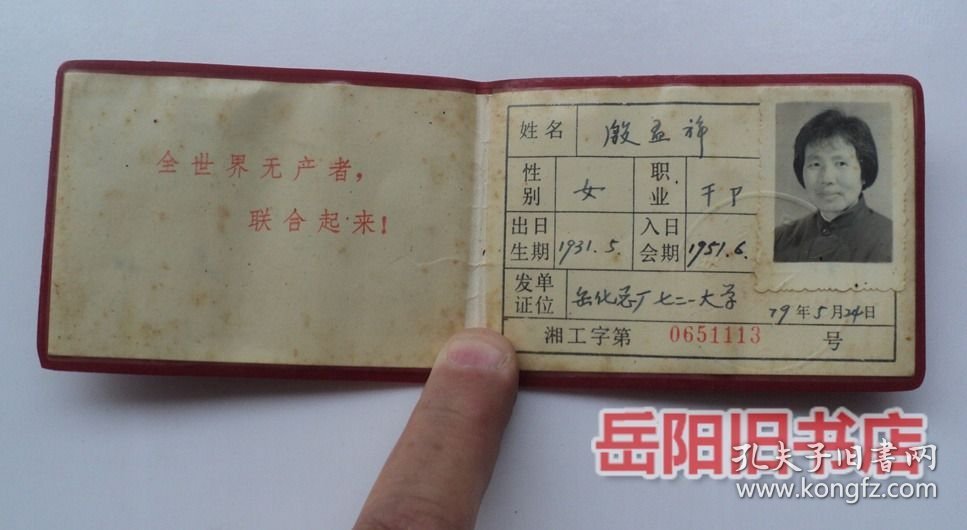 全世界无产者，
联合起来！
姓名 殷孟禘
性别 女 职业 干卩
出生日期 1931.5. 入会日期 1951.6.
发证单位 岳化总厂七二一大学 79年5月24日
湘工字第 0651113 号
岳阳旧书店
孔夫子旧書网
www.kongfz.com